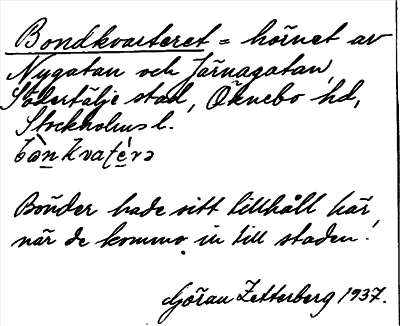 Bondkvarteret = hörnet av
Nygatan och Järnagatan,
Södertälje stad, Öknebo hd,
Stockholms l.
bònkvaté̱rə
Bönder hade sitt tillhåll här,
när de kommo in till staden!
Göran Zetterberg 1937.